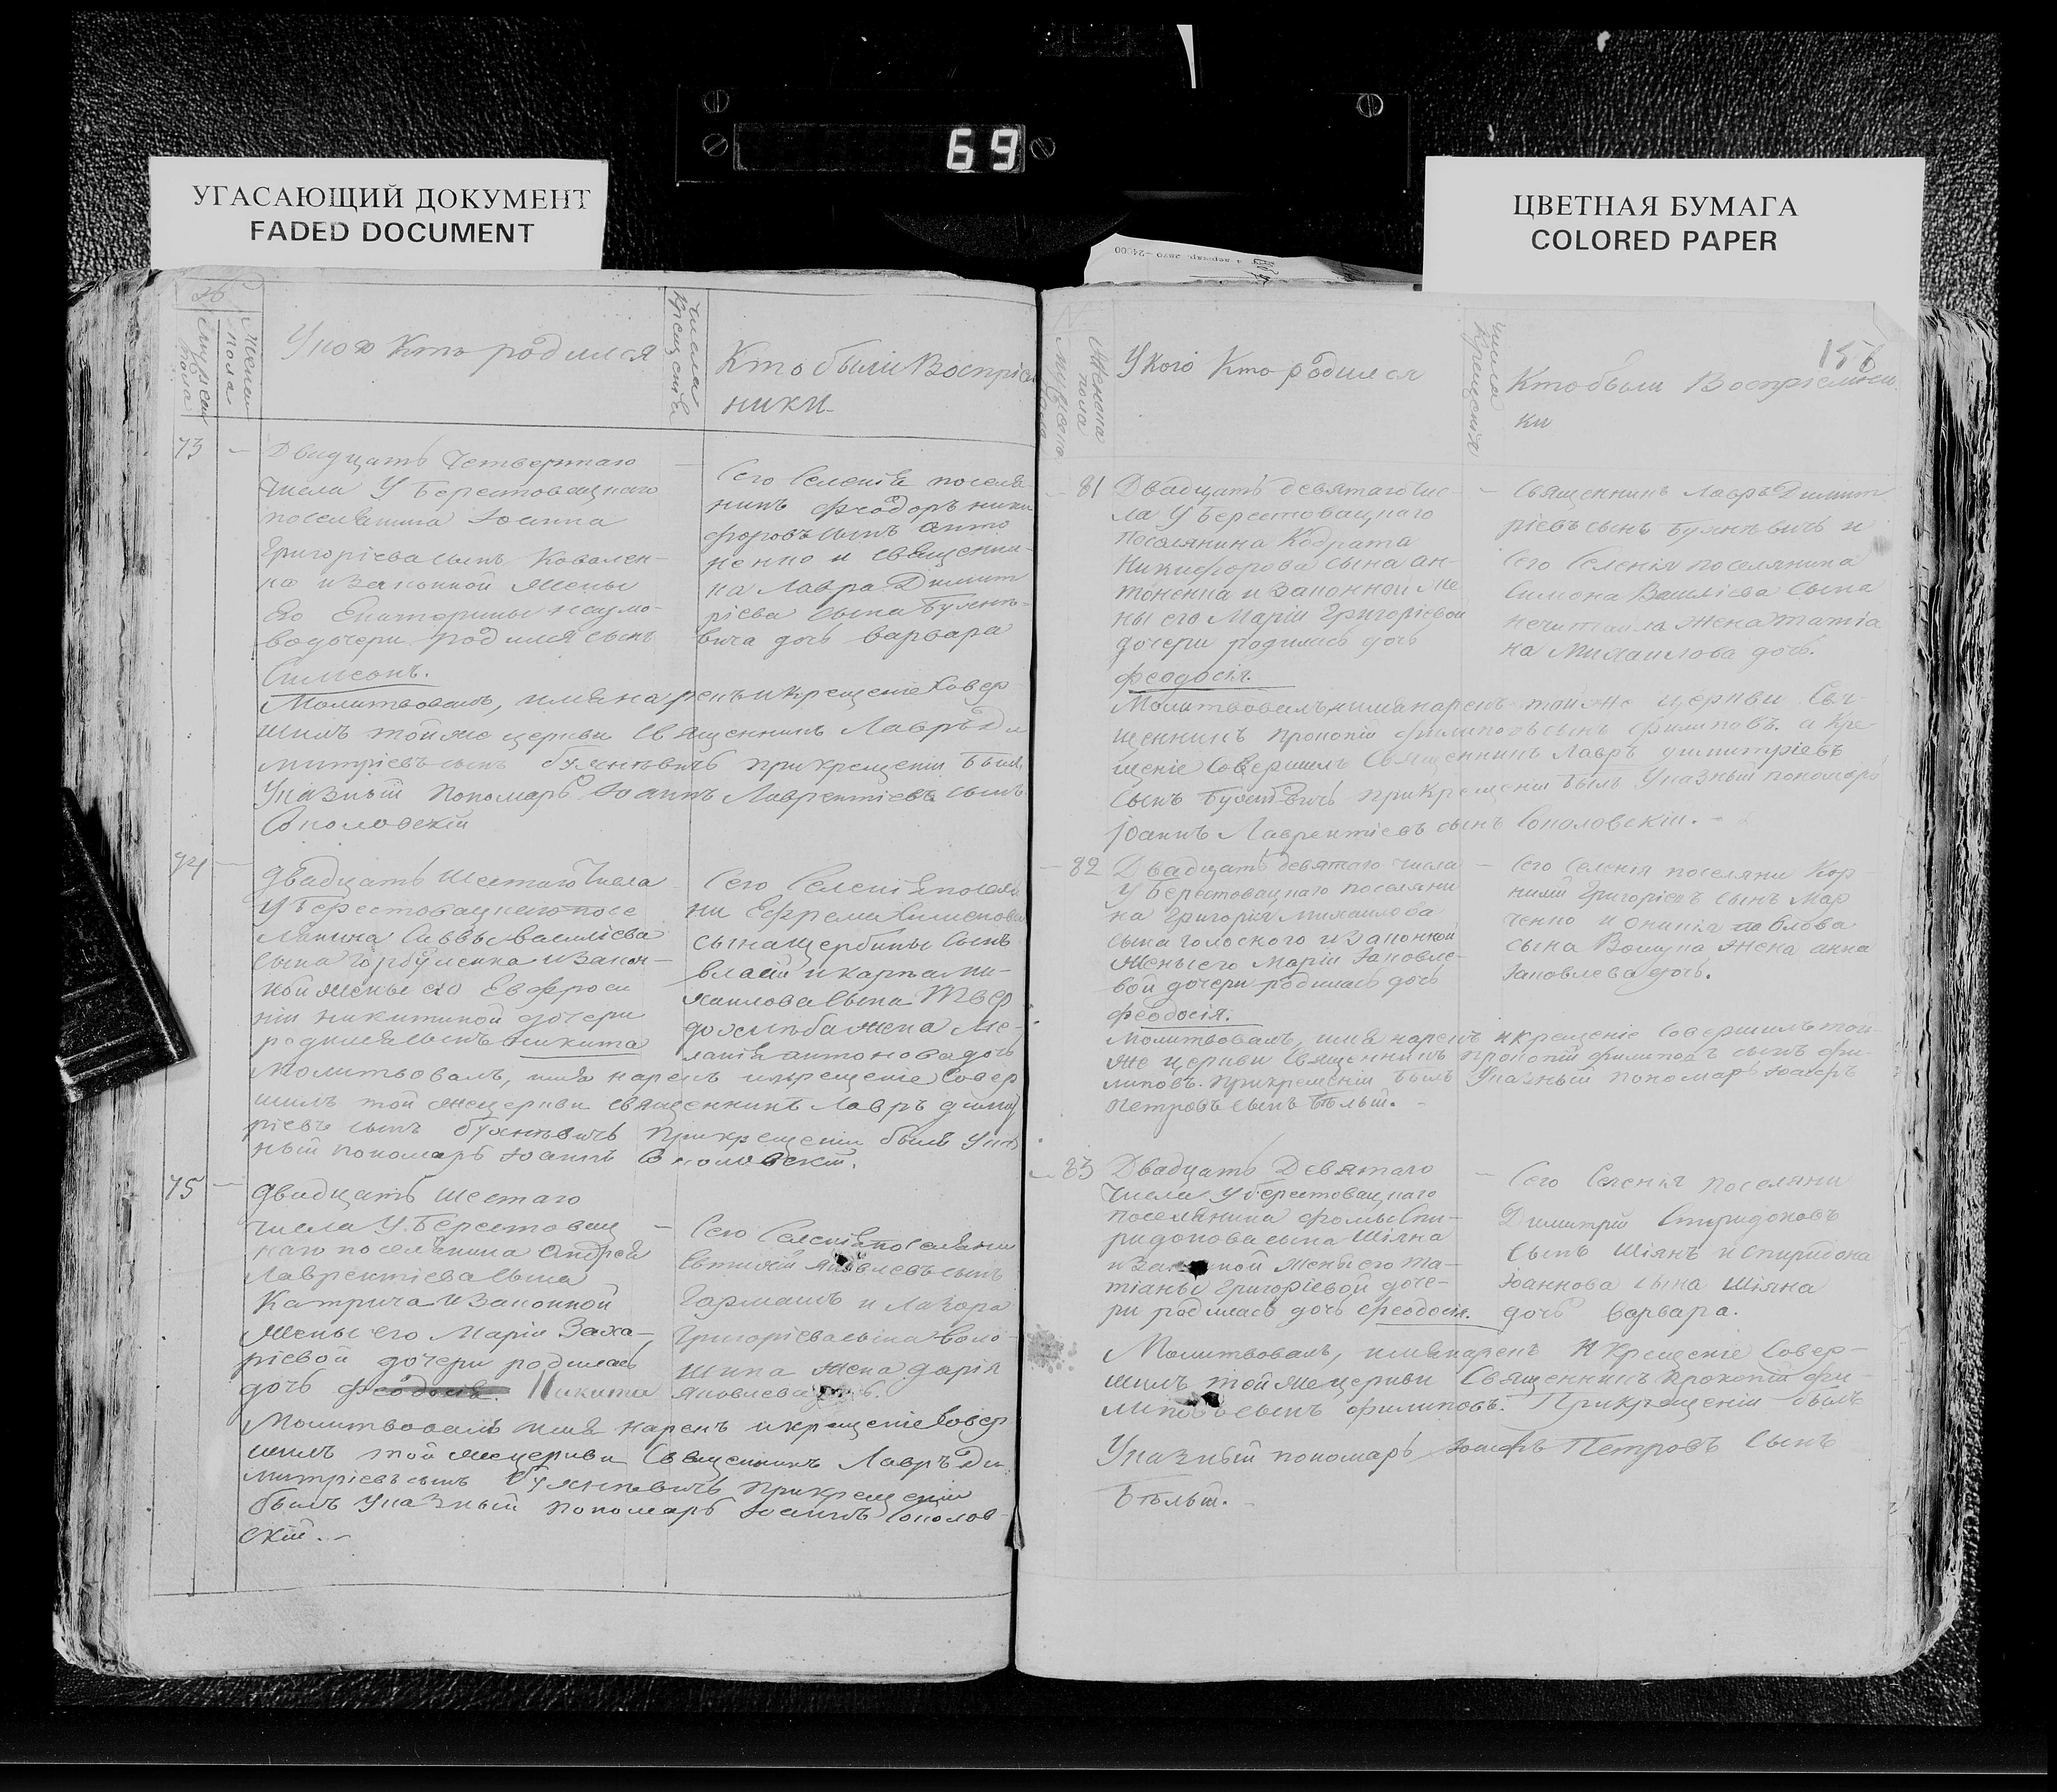 69
УГАСАЮЩИЙ ДОКУМЕНТ
FADED DOCUMENT
ЦВЕТНАЯ БУМАГА
COLORED PAPER
Мужеска пола
Женска пола
У кого кто родился
Числа крещенїя
Кто были Воспрїем
ники
73
Двадцать четвертаго
числа У Берестовецкаго
поселянина Іоанна
Григорїева сына Ковален-
ка и законной жены
Его Екатерины Наумо-
вой дочери родился сынъ
Симеонъ.
Сего Селенїя поселя
нинъ Феодоръ Ники
форовъ сынъ Анто
ненко и священни-
ка Лавра Димит
рїева сына
дочь Варвара
Молитвовалъ, имя нареκъ и крещенїе Совер
шилъ той же церкви Священникъ Лавръ Ди
митрїевъ сынъ при крещенїи былъ
Указный пономарь Іоаннъ Лаврентїевъ сынъ
Соколовскїй
74
Двадцать шестаго числа
У Берестовецкаго посе
лянина Саввы Василїева
сына Горбуленка и закон-
ной жены его Евфроси
нїи Никитиной дочери
родился сынъ Никита
Сего Селенїя поселя
ни Ефрема Симеонова
сына Щербины сынъ
Власїй и Карпа Ми-
хаилова сына Твер
дохлѣба жена Ме-
ланїя Антонова дочь
Молитвовалъ, имя нарекъ и крещенїе Совер
шилъ той же церкви священникъ Лавръ Димит
рїевъ сынъ при крещенїи былъ Указ
ный пономарь Іоаннъ Соколовскїй.
75
Двадцать шестаго
числа У Берестовец
каго поселянина Андрея
Лаврентїева сына
Катрича и законной
жены его Марїи Заха-
рїевой дочери родилась
дочь Феодосїя. Никита
Сего Селенїя поселяни
Евтихїй Яковлевъ сынъ
Гармашъ и Лазора
Григорїева сына Воло-
шина жена Дарїя
Яковлева дочь.
Молитвовалъ имя нарекъ и крещенїе Совер
шилъ той же церкви Священникъ Лавръ Ди
митрїевъ сынъ при крещенїи
былъ Указный пономарь Іоаннъ Соколов
скїй.
У кого кто родился
Числа Крещенїя
Кто были Воспрїемни
ки
81
Двадцать девятаго чис-
ла У Берестовецкаго
поселянина Кодрата
Никифорова сына Ан-
тоненка и законной же
ны его Марїи Григорїевой
дочери родилась дочь
Феодосїя.
Священникъ Лавръ Димит
рїевъ сынъ и
Сего Селенїя поселянина
Симона Василїева сына
Нечитайла жена Татїа
на Михаилова дочь.
Молитвовалъ и имя нарекъ той же церкви Свя-
щенникъ Прокопїй Филиповъ сынъ Филиповъ. а Кре
щенїе Совершилъ Священникъ Лавръ Димитрїевъ
сынъ при крещенїи былъ Указный пономарь
Іоаннъ Лаврентїевъ сынъ Соколовскїй.
82
Двадцать девятаго числа
У Берестовецкаго поселяни
на Григорїя Михаилова
сына Голоского и законной
жены его Марїи Яковле-
вой дочери родилась дочь
Феодосїя.
Сего Селенїя поселяни Кор
нилїй Григорїевъ сынъ Мар
ченко и
сына жена Анна
Яковлева дочь.
Молитвовалъ, имя нарекъ и крещенїе Совершилъ той-
же церкви Священникъ Прокопїй Филиповъ сынъ Фи-
липовъ. При крещенїи былъ Указный пономарь Іосифъ
Петровъ сынъ Бѣлый.
83
Двадцать Девятаго
числа У Берестовецкаго
поселянина Фомы Спи-
ридонова сына Шіяна
и законной жены его Та-
тїаны Григорїевой доче-
ри родилась дочь Феодосїя.
Сего Селенїя поселяни
Димитрїй Спиридоновъ
сынъ Шіянъ и Спиридона
Іоаннова сына Шіяна
дочь Варвара.
Молитвовалъ, имя нарекъ и Крещенїе Совер-
шилъ той же церкви Священникъ Прокопїй Фи-
липовъ сынъ Филиповъ. При крещенїи былъ
Указный пономарь Іосифъ Петровъ сынъ
Бѣлый.